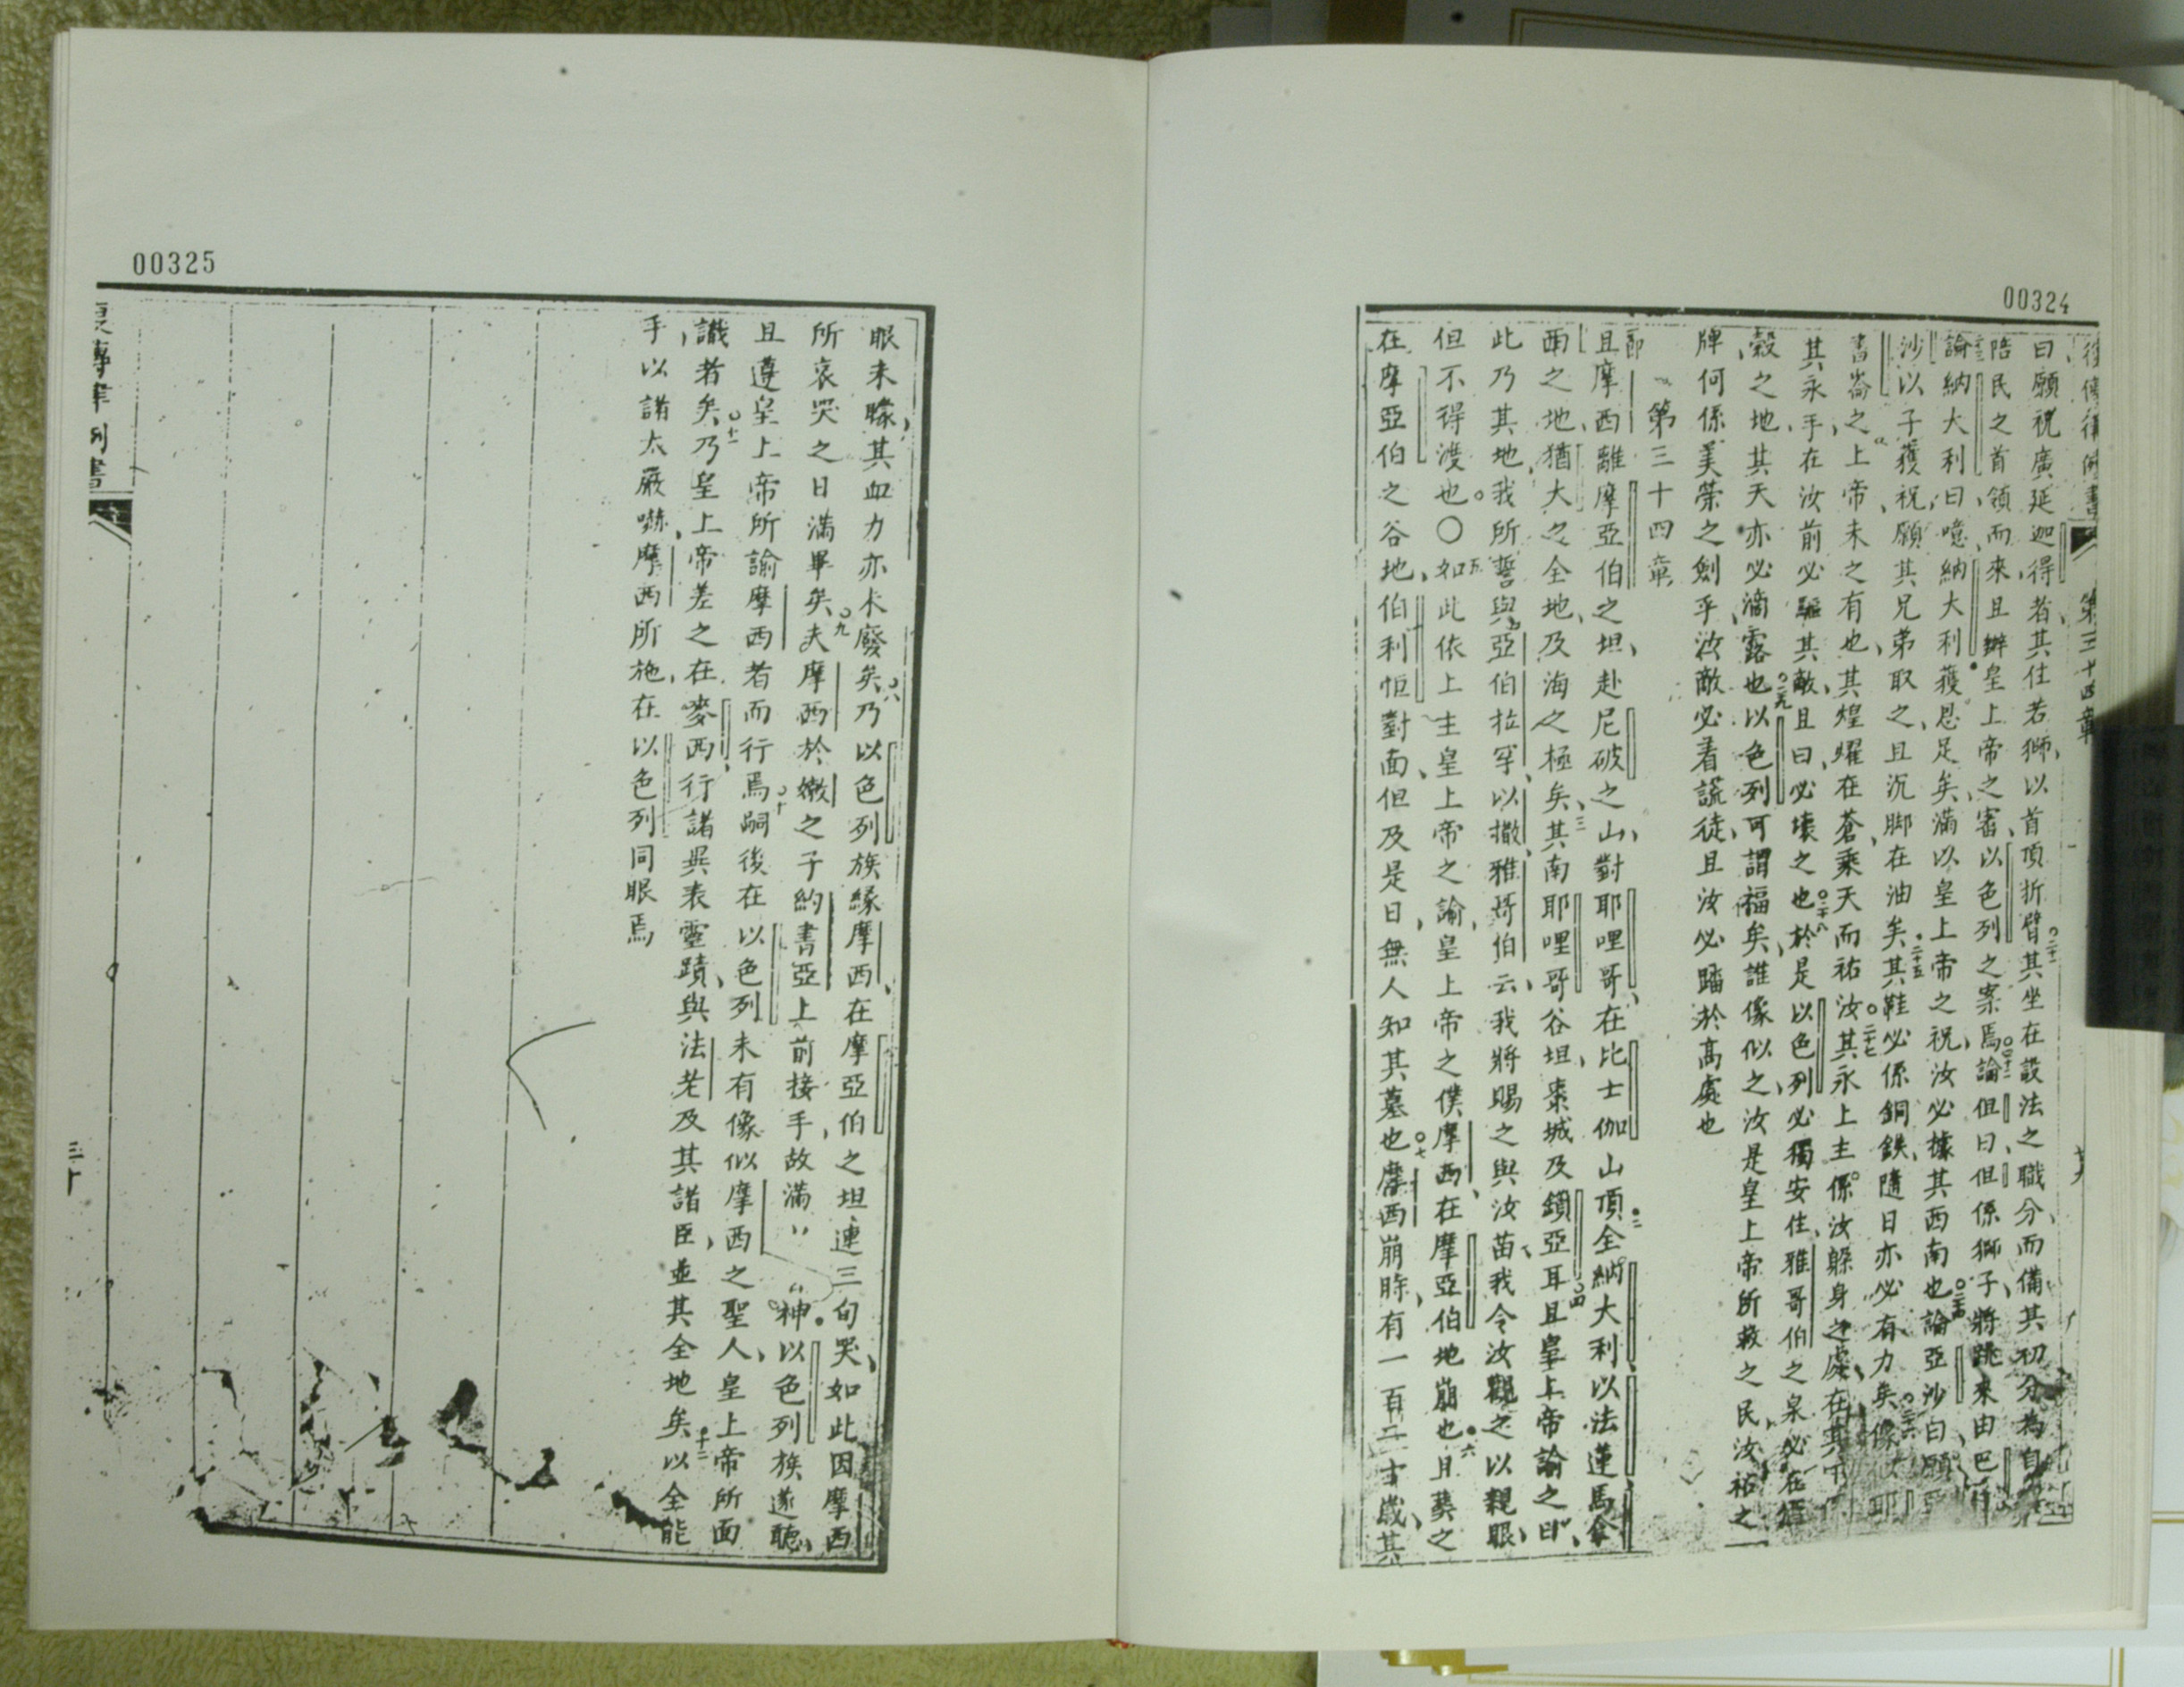 00324
復傳律例書 第三十四章
曰願祝廣延迦得者其住若獅以首頂折臂其坐在設法之職分而備其初分為自
陪民之首領而來且辦皇上帝之審以色列之案焉論但曰但係獅子將跳來由巴
論納大利曰噫納大利獲恩足矣滿以皇上帝之祝汝必據其西南也論亞沙曰願
沙以子獲祝願其兄弟取之且沉脚在油矣其鞋必係銅鉄隨日亦必有力矣像
書崙之上帝未之有也其煌耀在蒼乘天而祐汝其永上主係汝躲身之處在其下
其永手在汝前必驅其敵且曰必壞之也於是以色列必獨安住雅哥伯之泉必在
穀之地其天亦必滴露也以色列可謂福矣誰像似之汝是皇上帝所救之民汝祐之
牌何係美榮之劍乎汝敵必看謊徒且汝必踏於高處也
第三十四章
且摩西離摩亞伯之坦赴尼破之山對耶哩哥在比士伽山頂全納大利以法蓮馬拿
西之地猶大之全地及海之極矣其南耶哩哥谷坦棗城及鎖亞耳且皇上帝諭之曰
此乃其地我所誓與亞伯拉罕以撒雅哥伯云我將賜之與汝苗我令汝觀之以親眼
但不得渡也〇如此依上主皇上帝之諭皇上帝之僕摩西在摩亞伯地崩也且葬之
在摩亞伯之谷地伯利恒對面但及是日無人知其墓也摩西崩時有一百二十歲其
00325
眼未矇其血力亦未廢矣乃以色列族緣摩西在摩亞伯之坦連三旬哭如此因摩西
所哀哭之日滿畢矣夫摩西於嫩之子約書亞上前接手故滿神以色列族遂聽
且遵皇上帝所諭摩西者而行焉嗣後在以色列未有像似摩西之聖人皇上帝所面
識者矣乃皇上帝差之在麥西行諸異表靈蹟與法老及其諸臣並其全地矣以全能
手以諸太嚴嚇摩西所施在以色列同眼焉
復傳律例書
三十